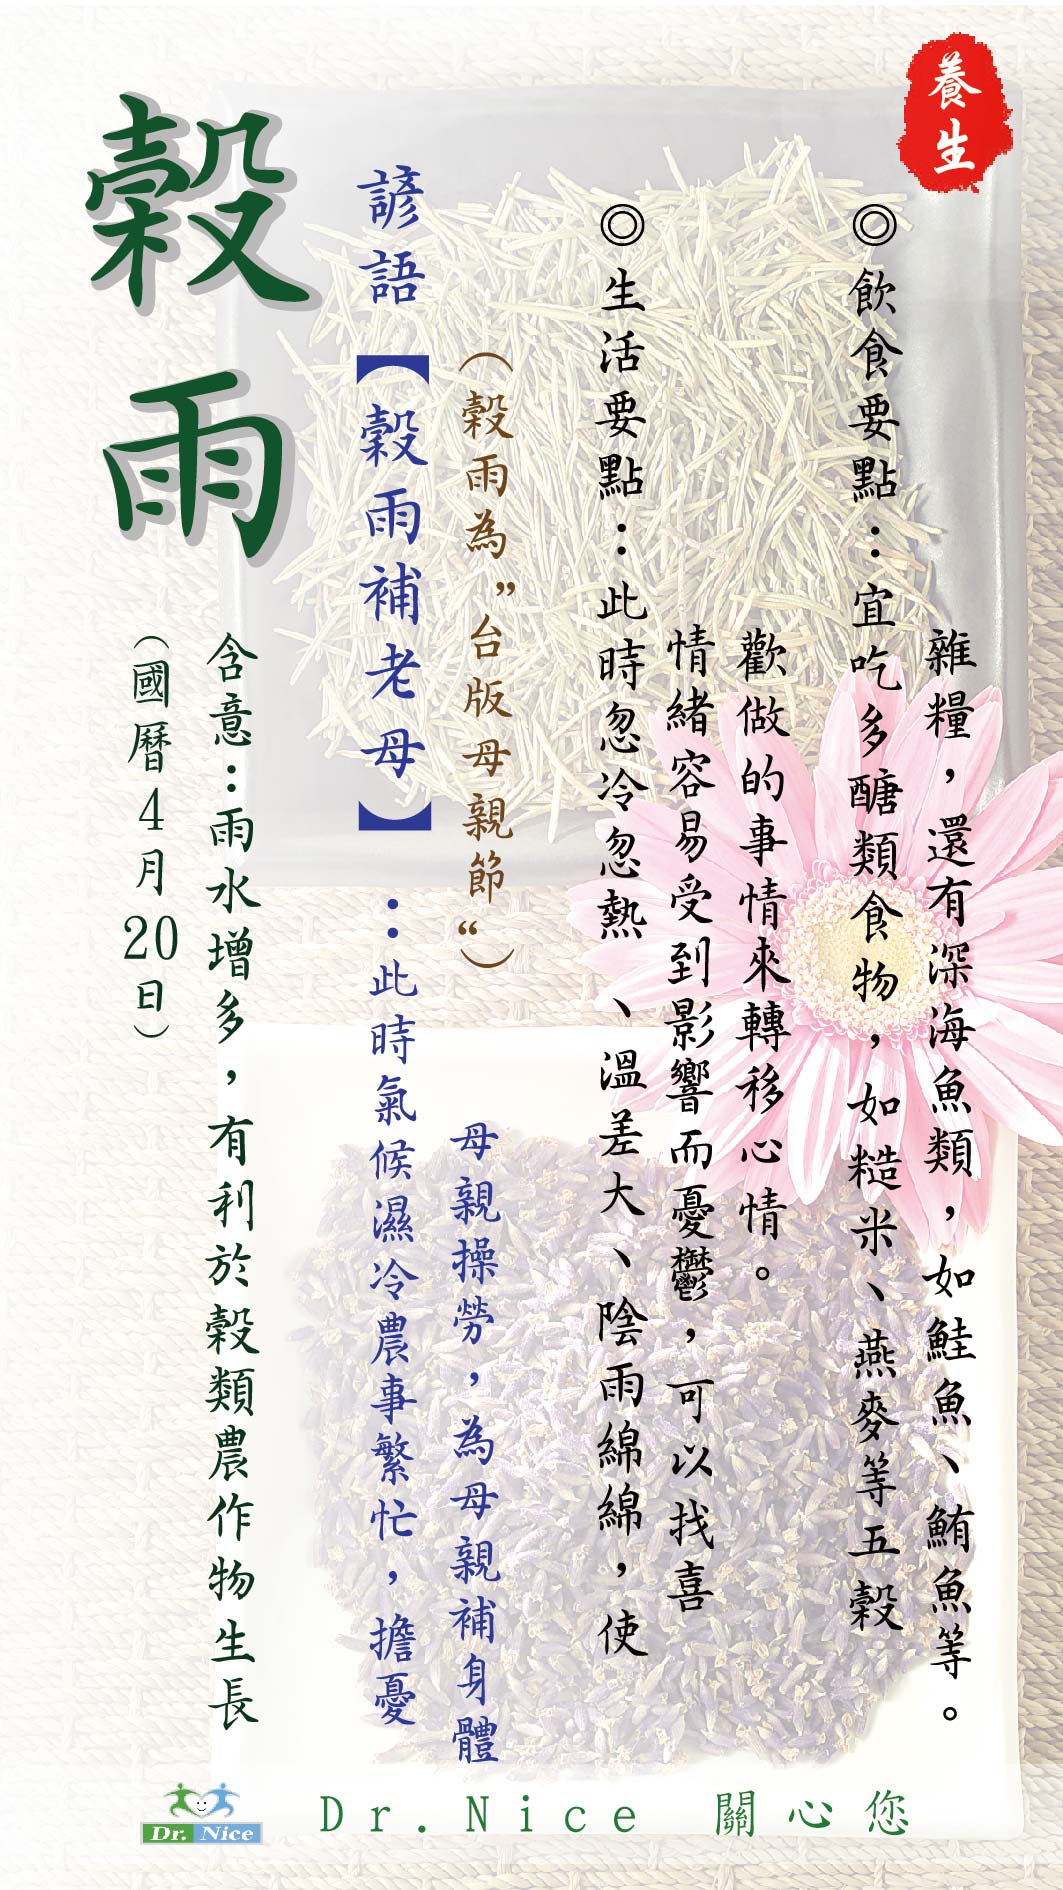 穀雨
(國曆4月20日)
含意:雨水增多，有利於穀類農作物生長
諺語【穀雨補老母】:此時氣候濕冷農事繁忙，擔憂
母親操勞，為母親補身體
(穀雨為”台版母親節“)
◎生活要點:此時忽冷忽熱、溫差大、陰雨綿綿，使
情緒容易受到影響而憂鬱，可以找喜
歡做的事情來轉移心情。
◎飲食要點:宜吃多醣類食物，如糙米、燕麥等五穀
雜糧，還有深海魚類，如鮭魚、鮪魚等。
養生
Dr. Nice
Dr.Nice 關心您